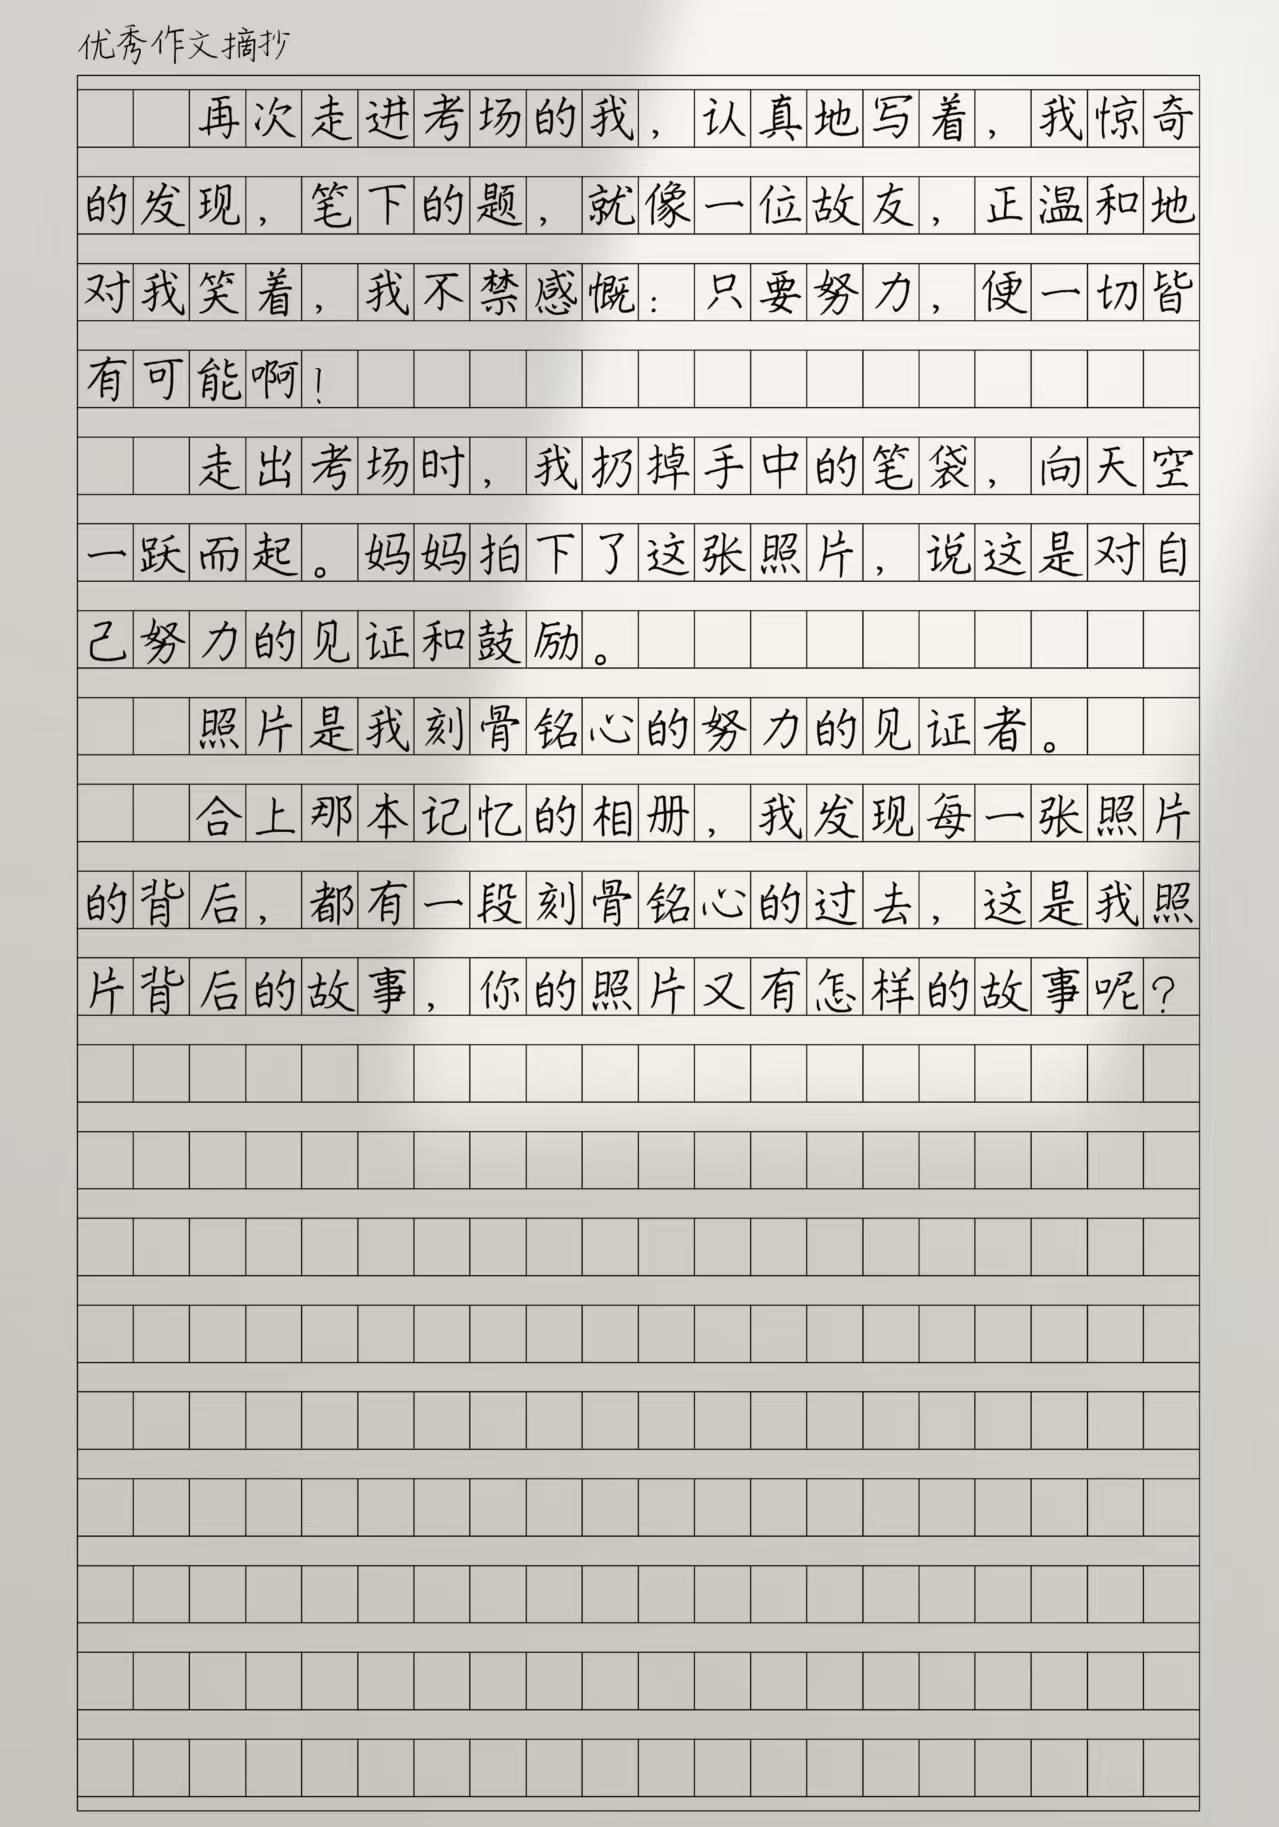 优秀作文摘抄
再次走进考场的我，认真地写着，我惊奇
的发现，笔下的题，就像一位故友，正温和地
对我笑着，我不禁感慨：只要努力，便一切皆
有可能啊！
走出考场时，我扔掉手中的笔袋，向天空
一跃而起。妈妈拍下了这张照片，说这是对自
己努力的见证和鼓励。
照片是我刻骨铭心的努力的见证者。
合上那本记忆的相册，我发现每一张照片
的背后，都有一段刻骨铭心的过去，这是我照
片背后的故事，你的照片又有怎样的故事呢？